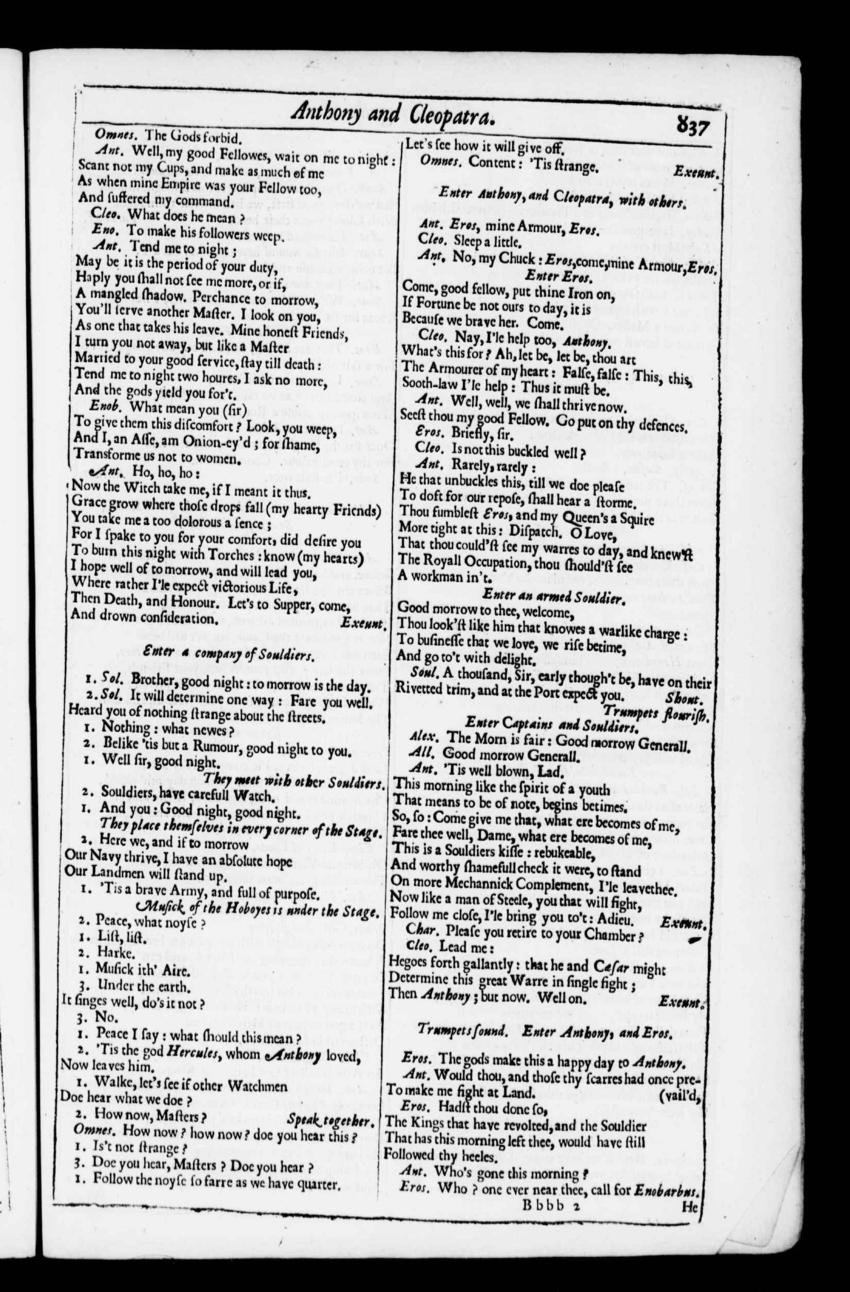 Anthony and Cleopatra.
837
Omnes. The Gods forbid.
Ant. Well, my good Fellowes, wait on me to night:
Scant not my Cups, and make as much of me
As when mine Empire was your Fellow too,
And suffered my command.
Cleo. What does he mean?
Eno. To make his followers weep.
Ant. Tend me to night;
May be it is the period of your duty,
Haply you ſhall not ſee me more, or if,
A mangled ſhadow. Perchance to morrow,
You'll ſerve another Maſter. I look on you,
As one that takes his leave. Mine honeſt Friends,
I turn you not away, but like a Maſter
Married to your good ſervice, ſtay till death:
Tend me to night two houres, I ask no more,
And the gods yield you for't.
Enob. What mean you (ſir)
To give them this diſcomfort? Look, you weep,
And I, an Aſſe, am Onion-ey'd; for ſhame,
Transforme us not to women.
Ant. Ho, ho, ho:
Now the Witch take me, if I meant it thus.
Grace grow where thoſe drops fall (my hearty Friends)
You take me a too dolorous a ſence;
For I ſpake to you for your comfort, did deſire you
To burn this night with Torches: know (my hearts)
I hope well of to morrow, and will lead you,
Where rather I'le expect victorious Life,
Then Death, and Honour. Let's to Supper, come,
And drown conſideration. Exeunt.
Enter a company of Souldiers.
1. Sol. Brother, good night: to morrow is the day.
2. Sol. It will determine one way: Fare you well.
Heard you of nothing ſtrange about the ſtreets.
1. Nothing: what newes?
2. Belike 'tis but a Rumour, good night to you.
1. Well ſir, good night.
They meet with other Souldiers.
2. Souldiers, have carefull Watch.
1. And you: Good night, good night.
They place themſelves in every corner of the Stage.
2. Here we, and if to morrow
Our Navy thrive, I have an abſolute hope
Our Landmen will ſtand up.
1. 'Tis a brave Army, and full of purpoſe.
Muſick of the Hoboyes is under the Stage.
2. Peace, what noyſe?
1. Liſt, liſt.
2. Harke.
1. Muſick ith' Aire.
3. Under the earth.
It ſinges well, do's it not?
3. No.
1. Peace I ſay: what ſhould this mean?
2. 'Tis the god Hercules, whom Anthony loved,
Now leaves him.
1. Walke, let's ſee if other Watchmen
Doe hear what we doe?
2. How now, Maſters? Speak together.
Omnes. How now? how now? doe you hear this?
1. Is't not ſtrange?
3. Doe you hear, Maſters? Doe you hear?
1. Follow the noyſe ſo farre as we have quarter.
Let's ſee how it will give off.
Omnes. Content: 'Tis ſtrange. Exeunt.
Enter Anthony, and Cleopatra, with others.
Ant. Eros, mine Armour, Eros.
Cleo. Sleep a little.
Ant. No, my Chuck: Eros, come, mine Armour, Eros.
Enter Eros.
Come, good fellow, put thine Iron on,
If Fortune be not ours to day, it is
Becauſe we brave her. Come.
Cleo. Nay, I'le help too, Anthony.
What's this for? Ah, let be, let be, thou art
The Armourer of my heart: Falſe, falſe: This, this,
Sooth-law I'le help: Thus it muſt be.
Ant. Well, well, we ſhall thrive now.
Seeſt thou my good Fellow. Go put on thy defences.
Eros. Briefly, ſir.
Cleo. Is not this buckled well?
Ant. Rarely, rarely:
He that unbuckles this, till we doe pleaſe
To doft for our repoſe, ſhall hear a ſtorme.
Thou fumbleſt Eros, and my Queen's a Squire
More tight at this: Diſpatch. O Love,
That thou could'ſt ſee my warres to day, and knew'ſt
The Royall Occupation, thou ſhould'ſt ſee
A workman in't.
Enter an armed Souldier.
Good morrow to thee, welcome,
Thou look'ſt like him that knowes a warlike charge:
To buſineſſe that we love, we riſe betime,
And go to't with delight.
Soul. A thouſand, Sir, early though't be, have on their
Rivetted trim, and at the Port expect you. Shout.
Trumpets flouriſh.
Enter Captains and Souldiers.
Alex. The Morn is fair: Good morrow Generall.
All. Good morrow Generall.
Ant. 'Tis well blown, Lad.
This morning like the ſpirit of a youth
That means to be of note, begins betimes.
So, ſo: Come give me that, what ere becomes of me,
Fare thee well, Dame, what ere becomes of me,
This is a Souldiers kiſſe: rebukeable,
And worthy ſhamefull check it were, to ſtand
On more Mechannick Complement, I'le leave thee.
Now like a man of Steele, you that will fight,
Follow me cloſe, I'le bring you to't: Adieu. Exeunt.
Char. Pleaſe you retire to your Chamber?
Cleo. Lead me:
He goes forth gallantly: that he and Cæſar might
Determine this great Warre in ſingle fight;
Then Anthony; but now. Well on. Exeunt.
Trumpets ſound. Enter Anthony, and Eros.
Eros. The gods make this a happy day to Anthony.
Ant. Would thou, and thoſe thy ſcarres had once pre-
To make me fight at Land. (vail'd,
Eros. Hadſt thou done ſo,
The Kings that have revolted, and the Souldier
That has this morning left thee, would have ſtill
Followed thy heeles.
Ant. Who's gone this morning?
Eros. Who? one ever near thee, call for Enobarbus.
Bbbb 2 He